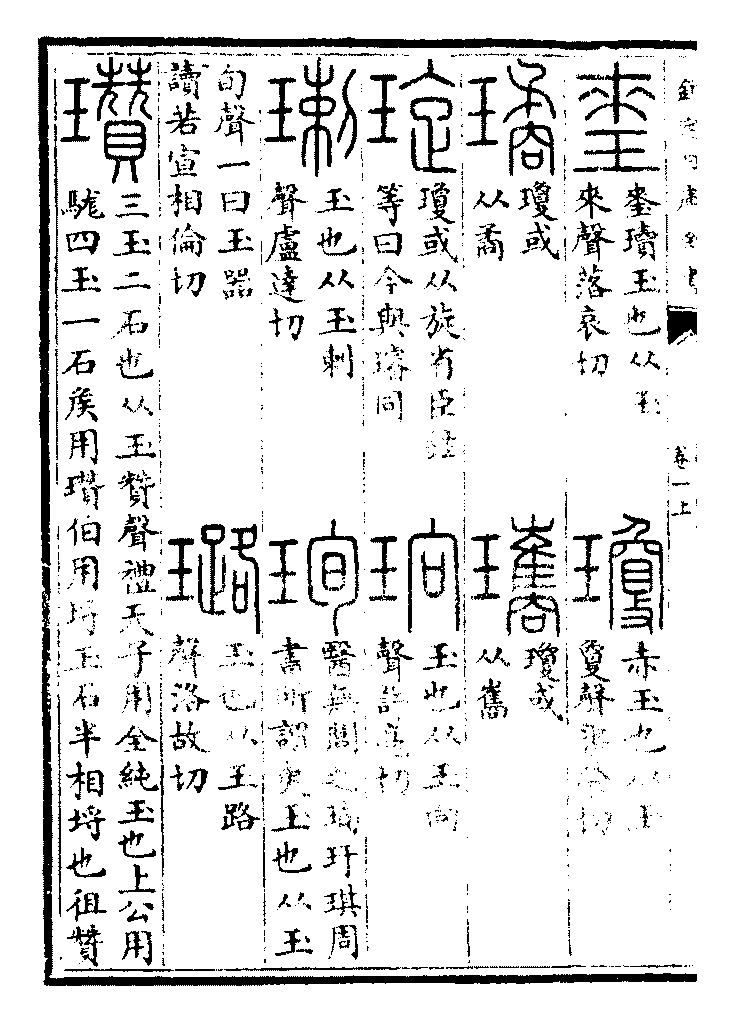 欽定四庫全書
卷一上
琜
琜瓄玉也从玉
來聲落哀切
瓊
赤玉也从玉
夐聲渠營切
璚
瓊或
从矞
瓗
瓊或
从巂
琁
瓊或从旋省臣鉉
等曰今與璿同
珦
玉也从玉向
聲許亮切
瓎
玉也从玉剌
聲盧達切
珣
醫無閭之珣玗琪周
書所謂夷玉也从玉
旬聲一曰玉器
讀若宣相倫切
璐
玉也从玉路
聲洛故切
瓚
三玉二石也从玉贊聲禮天子用全純玉也上公用
駹四玉一石矦用瓚伯用埒玉石半相埒也徂贊